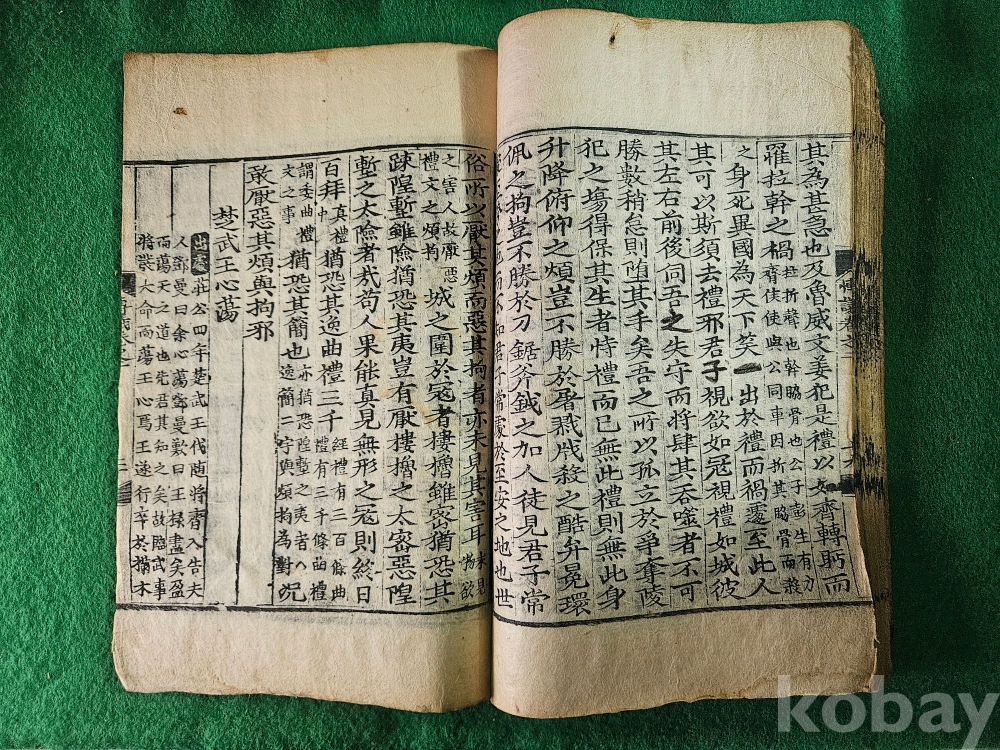 其為甚急也及魯威文姜犯是禮以如齊轉眄而
罹拉幹之禍拉折聲也幹脇骨也公子彭生有力
齊侯使與公同車因折其脇骨而薨
之身死異國為天下笑一出於禮而禍遽至此人
其可以斯須去禮邪君子視欲如冠視禮如城彼
其左右前後伺吾之失守而將肆其吞噬者不可
勝數稍怠則堕其手矣吾之所以孤立於爭奪陵
犯之場得保其生者恃禮而已無此禮則無此身
升降俯仰之煩豈不勝於屠戕殺之酷弁冕環
佩之拘豈不勝於刀鋸斧鉞之加人徒見君子常
處於至安之地也世
俗所以厭其煩而惡其拘者亦未見其害耳未見
物欲
之害人故厭惡
禮文之煩拘
城之圍於寇者樓櫓雖密猶恐其
踈隍塹雖險猶恐其夷豈有厭樓櫓之太密惡隍
塹之太險者㢤苟人果能真見無形之寇則終日
百拜真禮中猶恐其逸曲禮三千經禮有三百條曲
禮有三千條曲禮
謂委曲禮
文之事
猶恐其簡也亦猶恐隍塹之夷者八
逸簡二字與煩拘為對
况
敢厭惡其煩與拘邪
楚武王心蕩
出處莊公四年楚武王伐随將齊入告夫
人鄧曼曰余心蕩鄧曼歎曰王祿盡矣盈
而蕩天之道也先君其知之矣故臨武事
將發大命而蕩王心焉王遂行卒於樠木
kobay